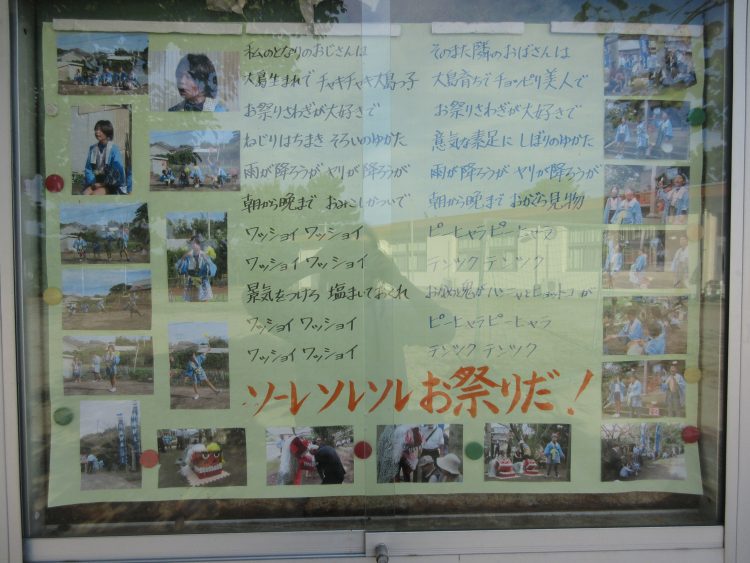 私のとなりのおじさんは
大島生まれで チャキチャキ大島っ子
お祭りさわぎが大好きで
ねじりはちまき そろいのゆかた
雨が降ろうが ヤリが降ろうが
朝から晩まで おみこしかついで
ワッショイ ワッショイ
ワッショイ ワッショイ
景気をつけろ 塩まいておくれ
ワッショイ ワッショイ
ワッショイ ワッショイ
そのまた隣のおばさんは
大島育ちで チョッピリ美人で
お祭りさわぎが大好きで
意気な素足に しぼりのゆかた
雨が降ろうが ヤリが降ろうが
朝から晩まで おかぐら見物
ピーヒャラ ピーヒャラ
テンツク テンツク
おかめと鬼が ハンニャとヒョットコが
ピーヒャラ ピーヒャラ
テンツク テンツク
ソーレ ソレソレ お祭りだ!